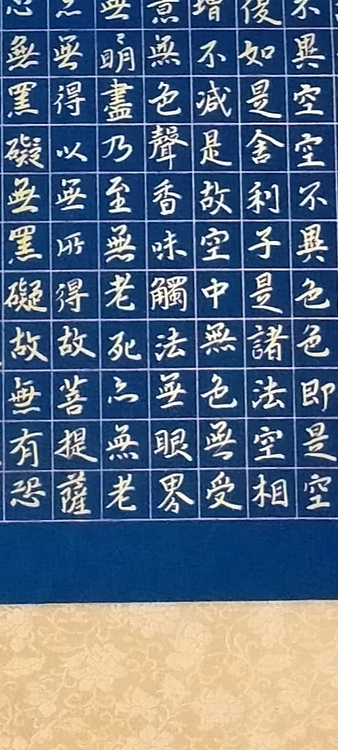 不異空空不異色色即是空
復如是舍利子是諸法空相
增不減是故空中無色無受
意無色聲香味觸法無眼界
無明盡乃至無老死亦無老
亦無得以無所得故菩提薩
心無罣礙無罣礙故無有恐